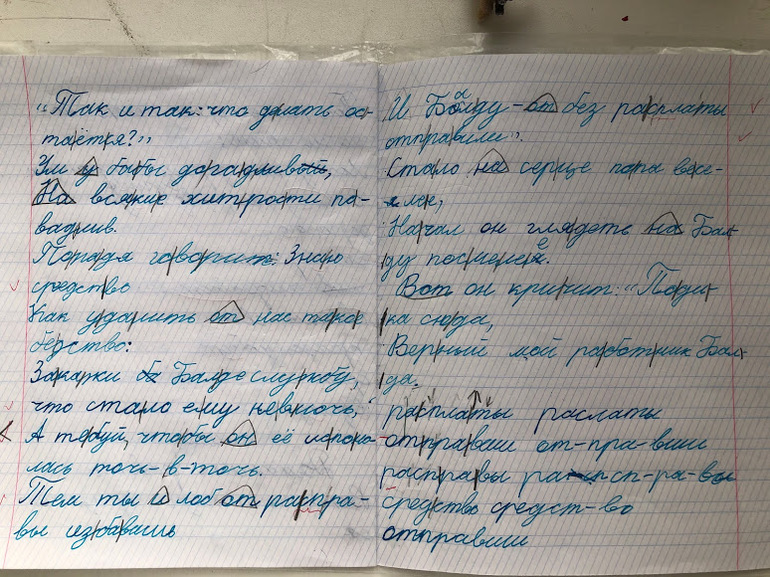 „Так и так: что делать ос-
таётся?"
Ум у бабы догадливый,
На всякие хитрости па-
вадлив.
Попадя говорит: Знаю
средство
Как удалить от нас такое
бедство:
Закажи Балде службу,
что стало ему невмочь,
А требуй, чтобы он её исполни-
лась точь-в-точь.
Тем ты и лоб от распра-
вы избавишь
И Балду - от без расплаты
отправиш".
Стало на серце попа весе-
лее,
Начал он глядеть на Бал-
ду посмелее.
Вот он кричит: „Поди-
ка сюда,
Верный мой работник Бал-
да.
расплаты раслаты
отправиш от-пра-виш
расправы ра сп-ра-вы
средство средст-во
отправиш